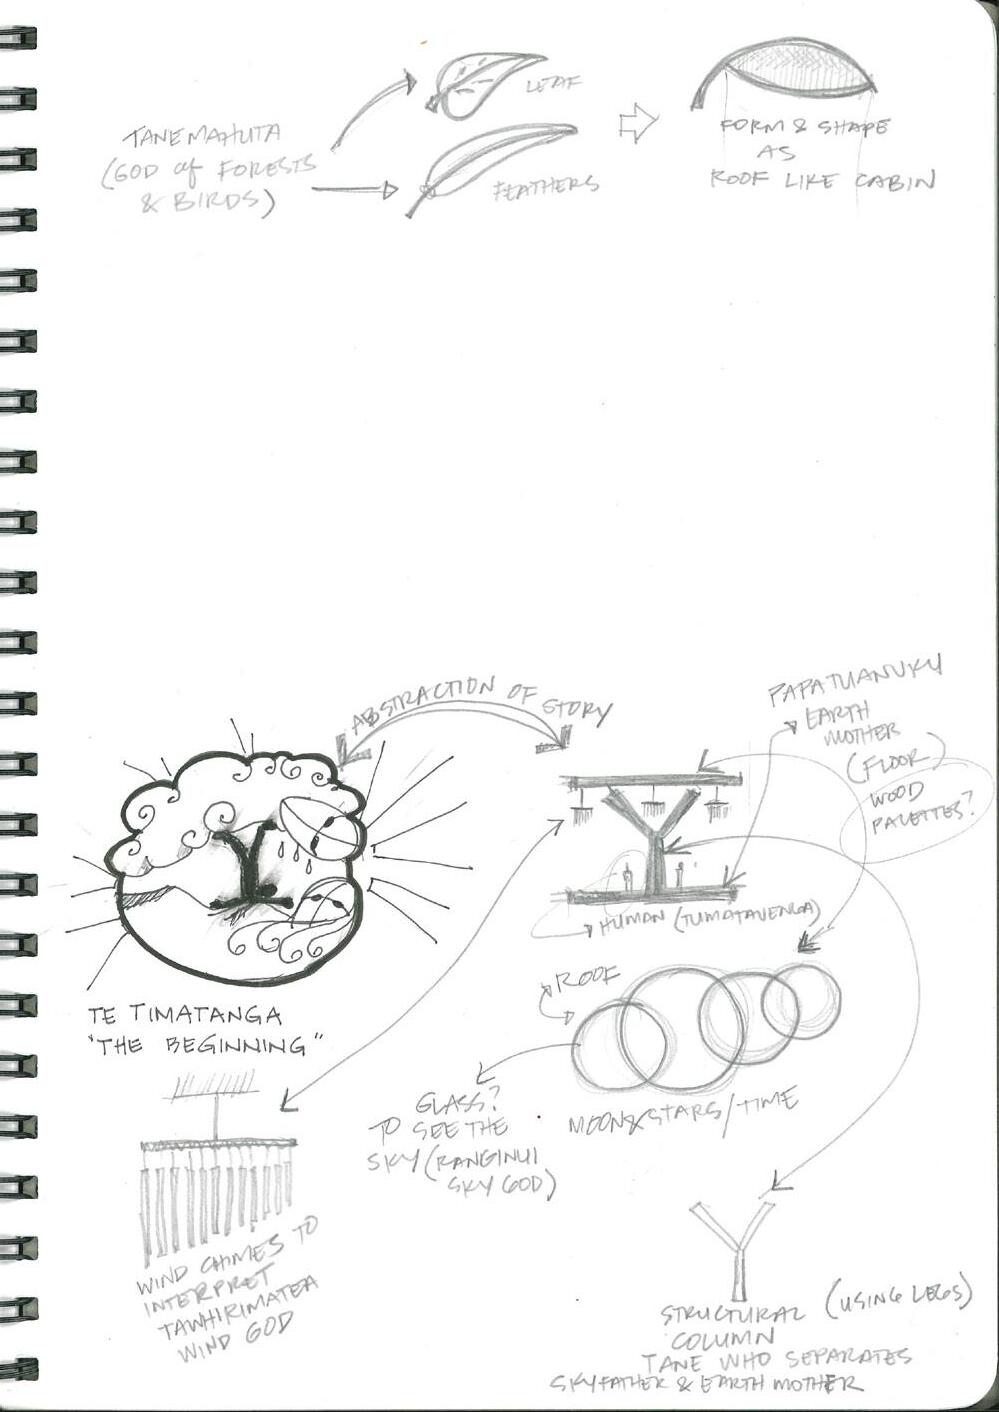 TANEMAHUTA
(GOD of FORESTS
& BIRDS)
LEAF
FEATHERS
FORM & SHAPE
AS
ROOF LIKE CABIN
ABSTRACTION OF STORY
PAPATUANUKU
EARTH
MOTHER
(FLOOR)
WOOD
PALETTES?
HUMAN (TUMATAUENGA)
TE TIMATANGA
"THE BEGINNING"
ROOF
GLASS?
TO SEE THE
SKY (RANGINUI
SKY GOD)
MOON & STARS / TIME
WIND CHIMES TO
INTERPRET
TAWHIRIMATEA
WIND GOD
STRUCTURAL (USING LEGS)
COLUMN
TANE WHO SEPARATES
SKYFATHER & EARTH MOTHER